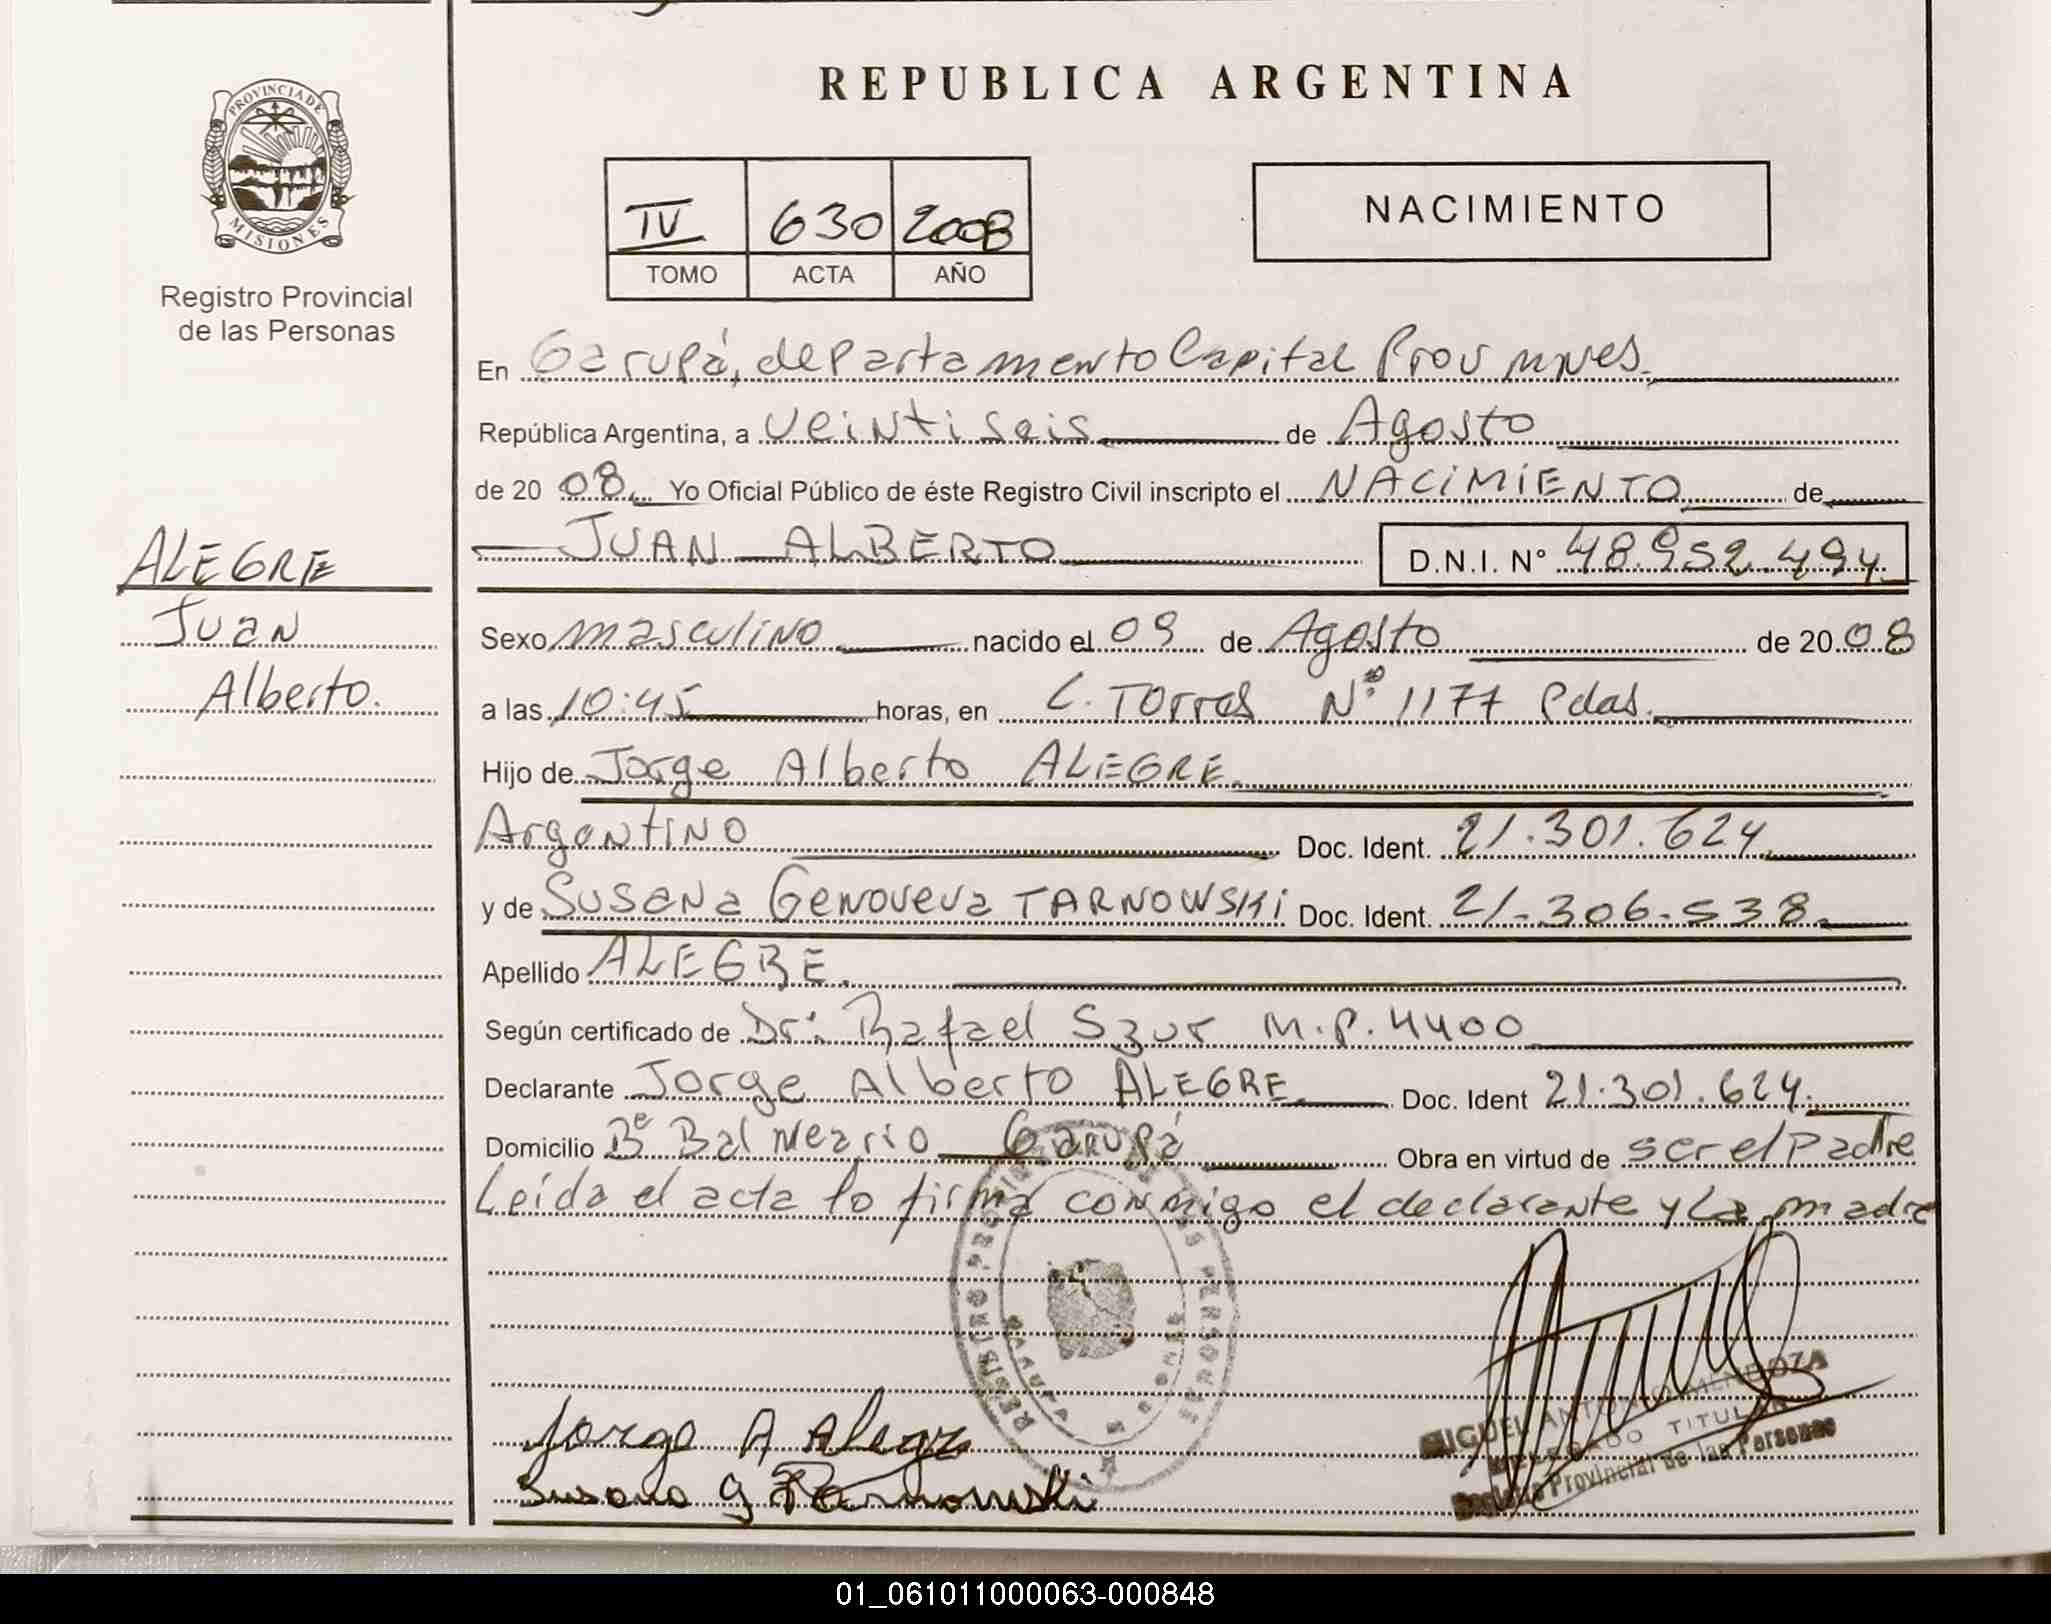 REPUBLICA ARGENTINA
PROVINCIA DE
MISIONES
Registro Provincial
de las Personas
IV 630 2008
TOMO ACTA AÑO
NACIMIENTO
En Garupá, departamento Capital Prov mnes.
República Argentina, a veintiseis de Agosto
de 20 08 Yo Oficial Público de éste Registro Civil inscripto el NACIMIENTO de
JUAN ALBERTO D.N.I. Nº 48.952.494
ALEGRE
Juan
Alberto.
Sexo masculino nacido el 09 de Agosto de 20 08
a las 10:45 horas, en C. Torres Nº 1177 Pdas.
Hijo de Jorge Alberto ALEGRE.
Argentino Doc. Ident. 21.301.624
y de Susana Genoveva TARNOWSKI Doc. Ident. 21.306.538.
Apellido ALEGRE.
Según certificado de Dr: Rafael Szur M.P. 4400
Declarante Jorge Alberto ALEGRE. Doc. Ident 21.301.624.
Domicilio Bº Balneario Garupá Obra en virtud de ser el Padre
Leída el acta lo firma conmigo el declarante y la madre
Jorge A Alegre
Susana G Tarnowski
MIGUEL ANTONIO MENDOZA
DELEGADO TITULAR
Registro Provincial de las Personas
01_061011000063-000848